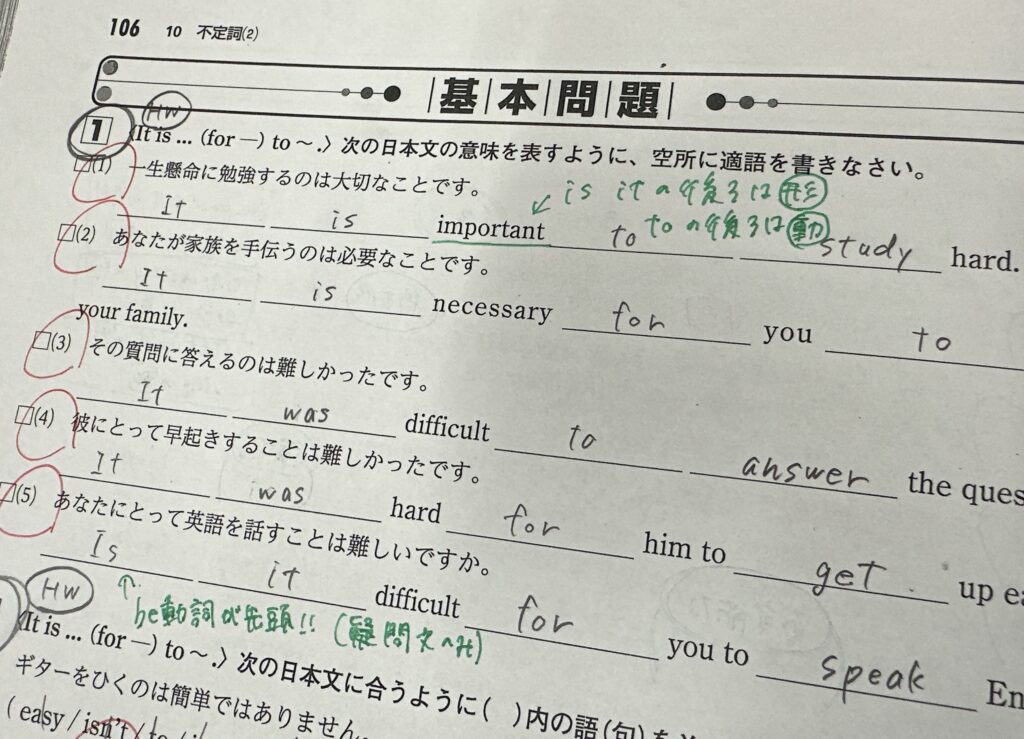 106 10 不定詞(2)
基本問題
HW
1 〈It is ... (for ―) to ~.〉次の日本文の意味を表すように、空所に適語を書きなさい。
□(1) 一生懸命に勉強するのは大切なことです。
is itの後ろは形
It is important to study hard.
toの後ろは動
□(2) あなたが家族を手伝うのは必要なことです。
It is necessary for you to
your family.
□(3) その質問に答えるのは難しかったです。
It was difficult to answer the ques
□(4) 彼にとって早起きすることは難しかったです。
It was hard for him to get up ea
□(5) あなたにとって英語を話すことは難しいですか。
Is it difficult for you to speak En
be動詞が先頭!! (疑問文へ)
HW
〈It is ... (for ―) to ~.〉次の日本文に合うように( )内の語(句)を
ギターをひくのは簡単ではありません。
( easy / isn't / to /